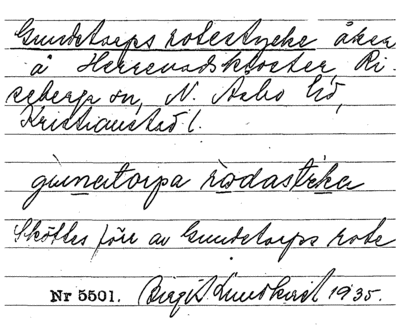 Gundetorps rotestycke åker
å Herrevadskloster Ri-
seberga sn, N. Åsbo hd,
Kristianstad l.
gunnatorpa rodasteka
Sköttes förr av Gundetorps rote
Nr 5501. Birgit Lundkvist 1935.